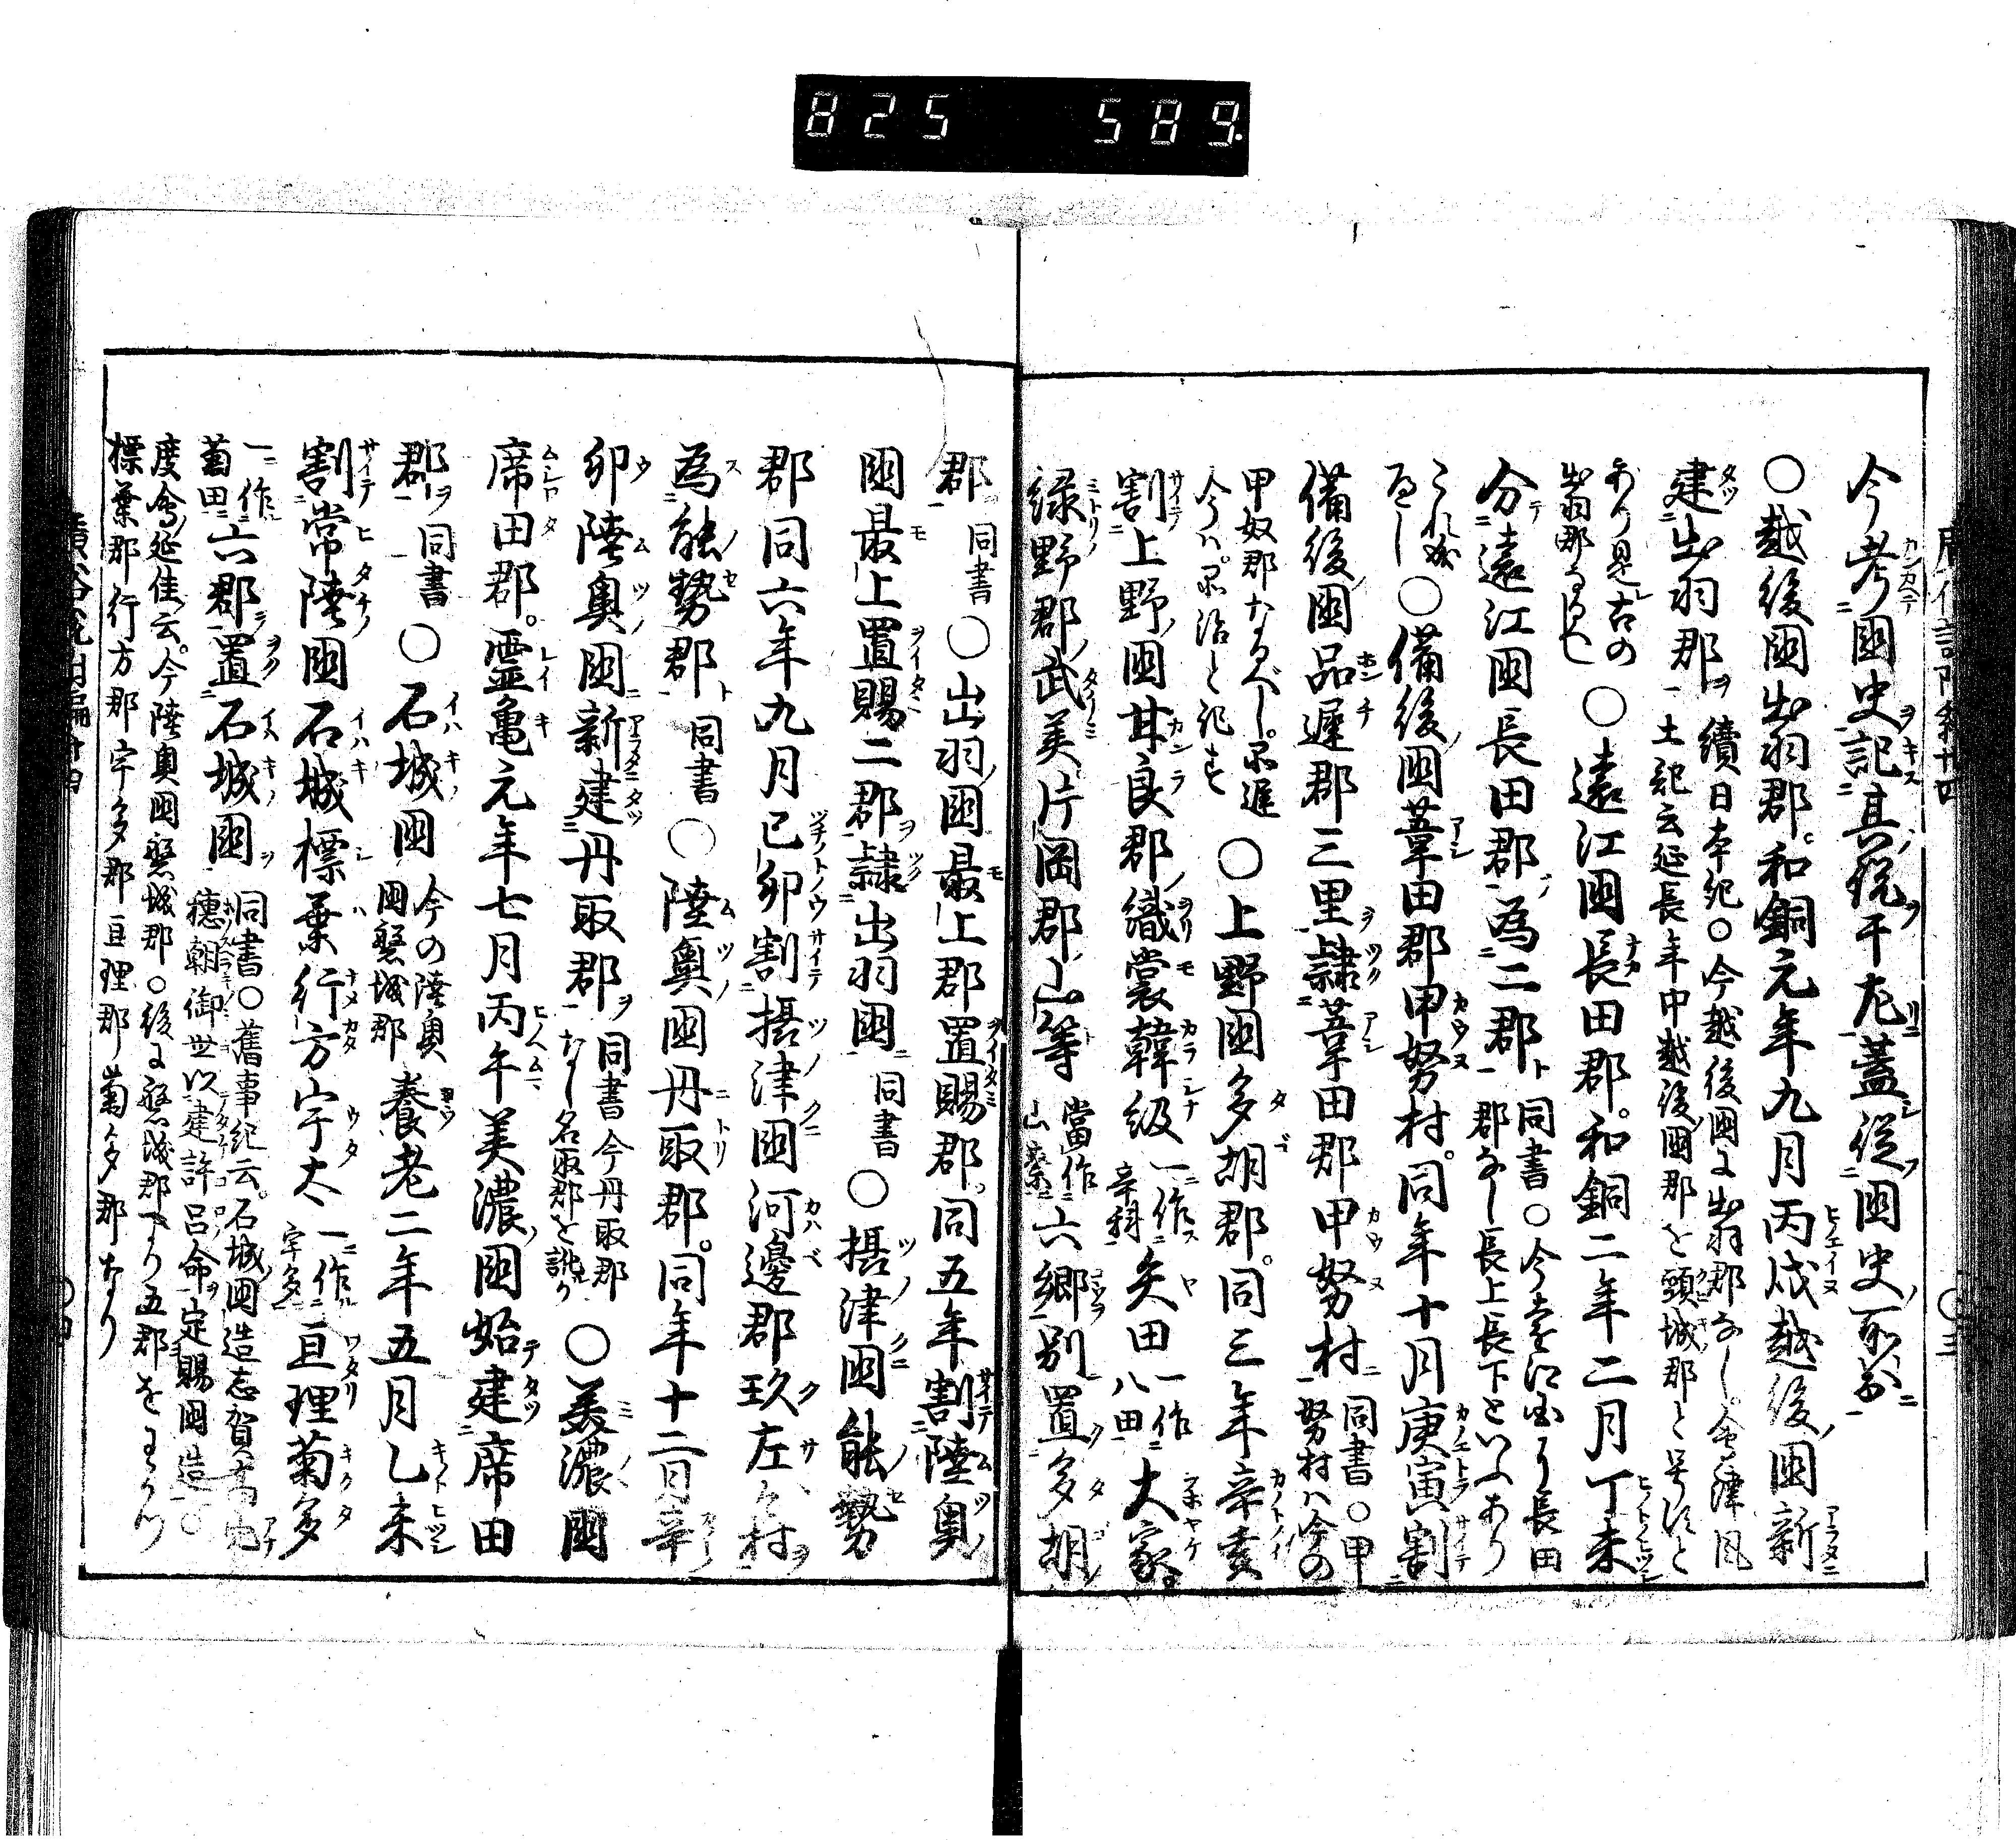 825 589
今考國史記其説于左蓋從國史所介
○越後國出羽郡。和銅元年九月丙戌越後國新
建出羽郡 續日本紀○今越後國に出羽郡なし。会津風
土記云延長年中越後國郡を頸城郡と号すと
あり是古の
出羽郡なるべし
○遠江國長田郡。和銅二年二月丁未
分遠江國長田郡為二郡 同書○今遠江國に長田
郡なし長上長下といふあり
これ歟
なるべし
○備後國葦田郡甲努村。同年十月庚寅割
備後國品遲郡三里隷葦田郡甲努村 同書○甲
努村ハ今の
甲奴郡なるべし。品遲
今ハ品治と記す
○上野國多胡郡。同三年辛亥
割上野國甘良郡織裳韓級 一作
辛科
矢田 一作
八田
大家
緑野郡武美片岡郡山等 當作
山素
六郷別置多胡
郡 同書
○出羽國最上郡置賜郡。同五年割陸奥
國最上置賜二郡隷出羽國 同書
○攝津國能勢
郡同六年九月己卯割攝津國河邊郡玖左々村
為能勢郡 同書
○陸奥國丹取郡。同年十二月辛
卯陸奥國新建丹取郡 同書今丹取郡
なし名取郡を訛か
○美濃國
席田郡。霊亀元年七月丙午美濃國始建席田
郡 同書
○石城國 今の陸奥
國磐城郡
養老二年五月乙未
割常陸國石城標葉行方宇太 一作
宇多
亘理菊多
一作
菊田
六郡置石城國 同書○舊事紀云。石城國造志賀高穴
穂朝御世以建許呂命定賜國造○
度會延佳云。今陸奥國磐城郡○後に磐城郡より五郡をわかつ
標葉郡行方郡宇多郡亘理郡菊多郡なり